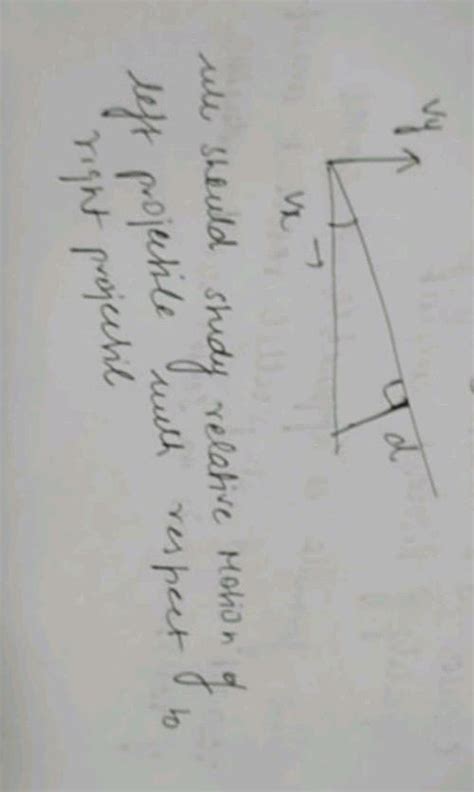 Vy
Vx →
d
we should study relative motion of
left projectile with respect to
right projectil